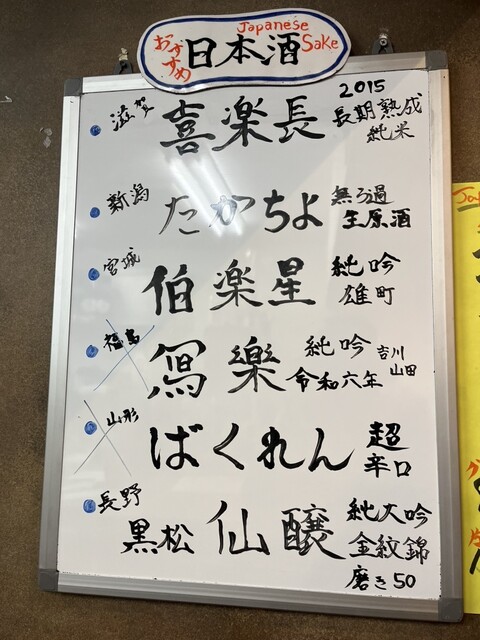 おすすめ
日本酒
Japanese
Sake
滋賀
喜楽長
2015
長期熟成
純米
新潟
たかちよ
無ろ過
生原酒
宮城
伯楽星
純吟
雄町
福島
冩樂
純吟 吉川
山田
令和六年
山形
ばくれん
超
辛口
長野
黒松 仙醸
純大吟
金紋錦
磨き50